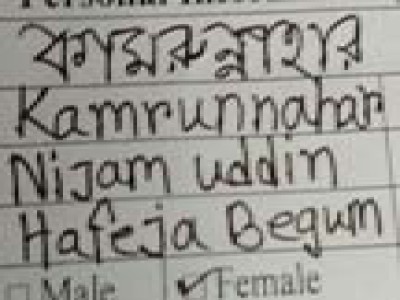 Personal
কামরুন্নাহার
Kamrunnahar
Nijam uddin
Hafeja Begum
Male Female